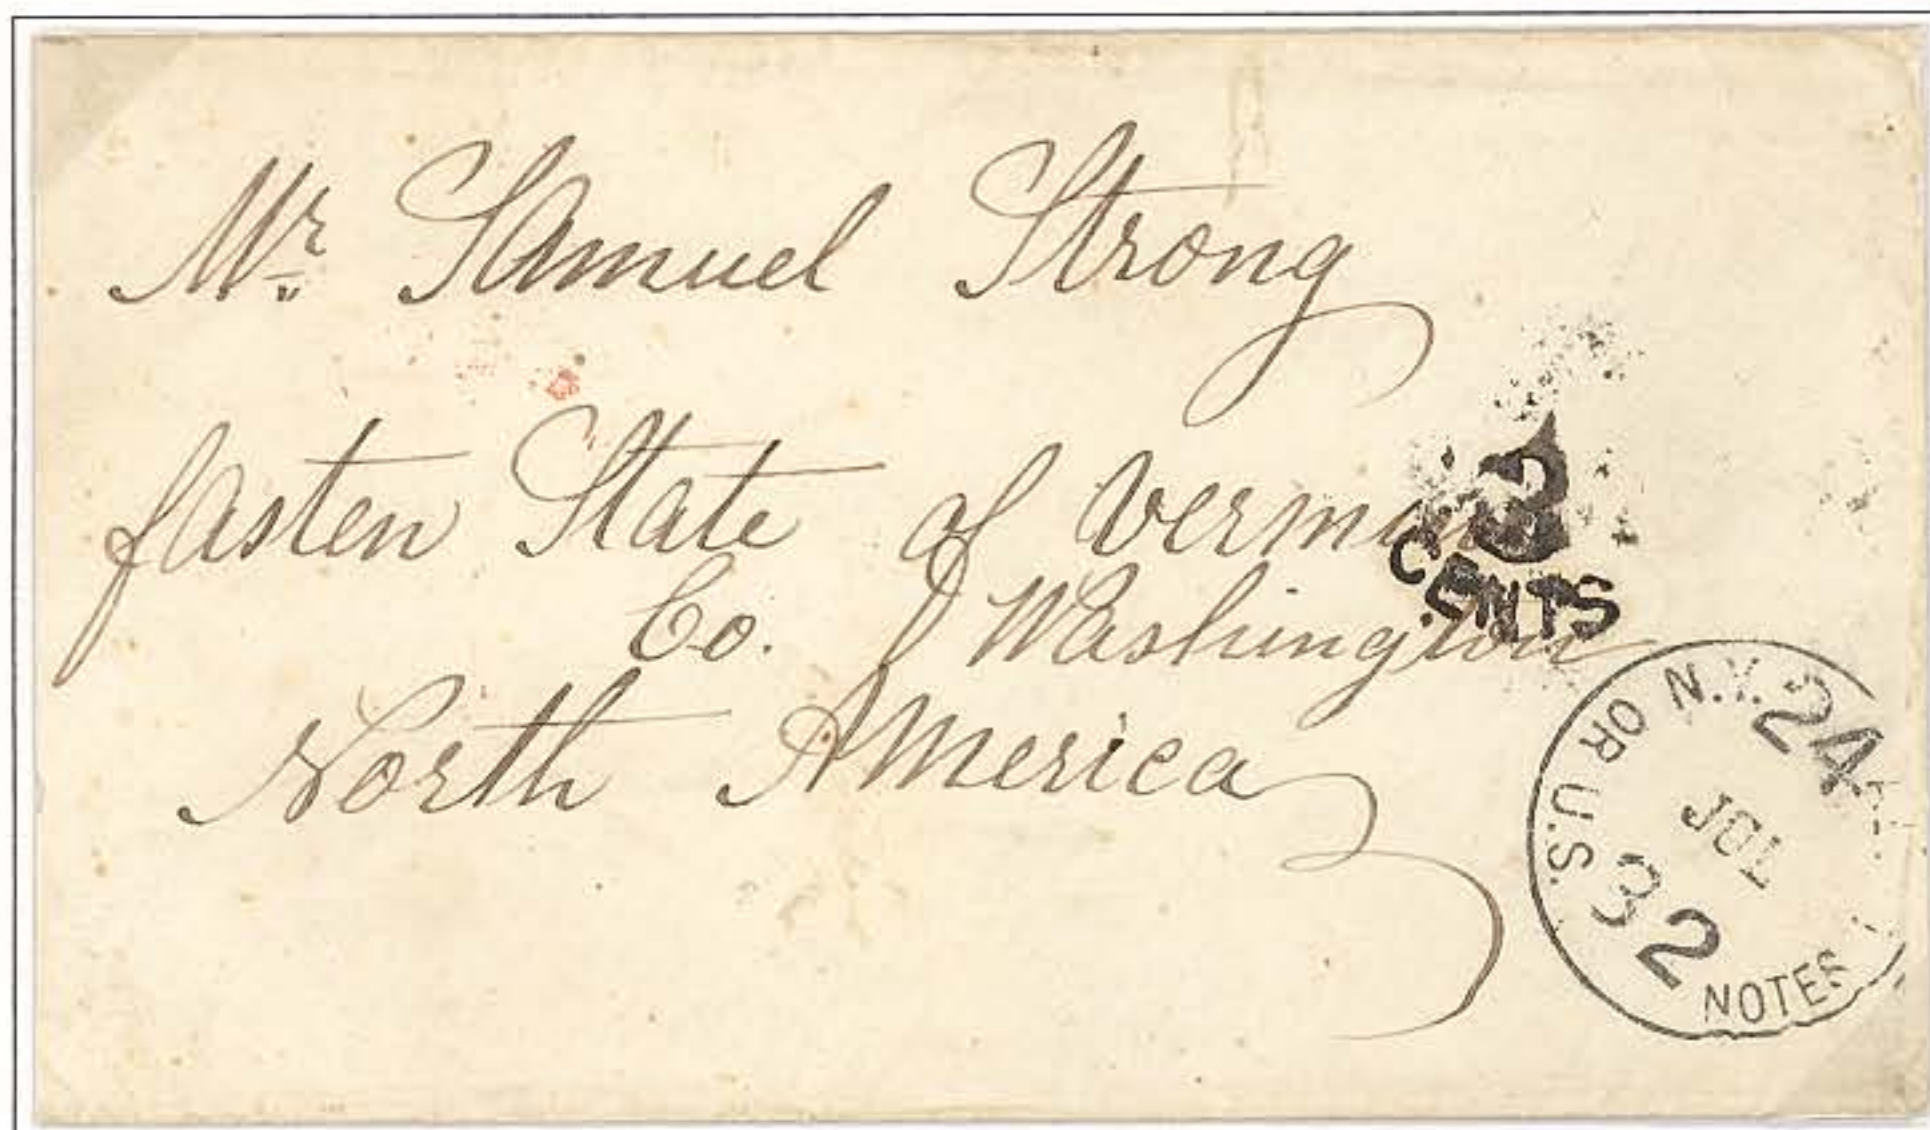 Mr. Samuel Strong
fasten State of Vermont
Co. Washington
North America
3
CENTS
N.Y. 24
JUL
32
OR U.S. NOTES